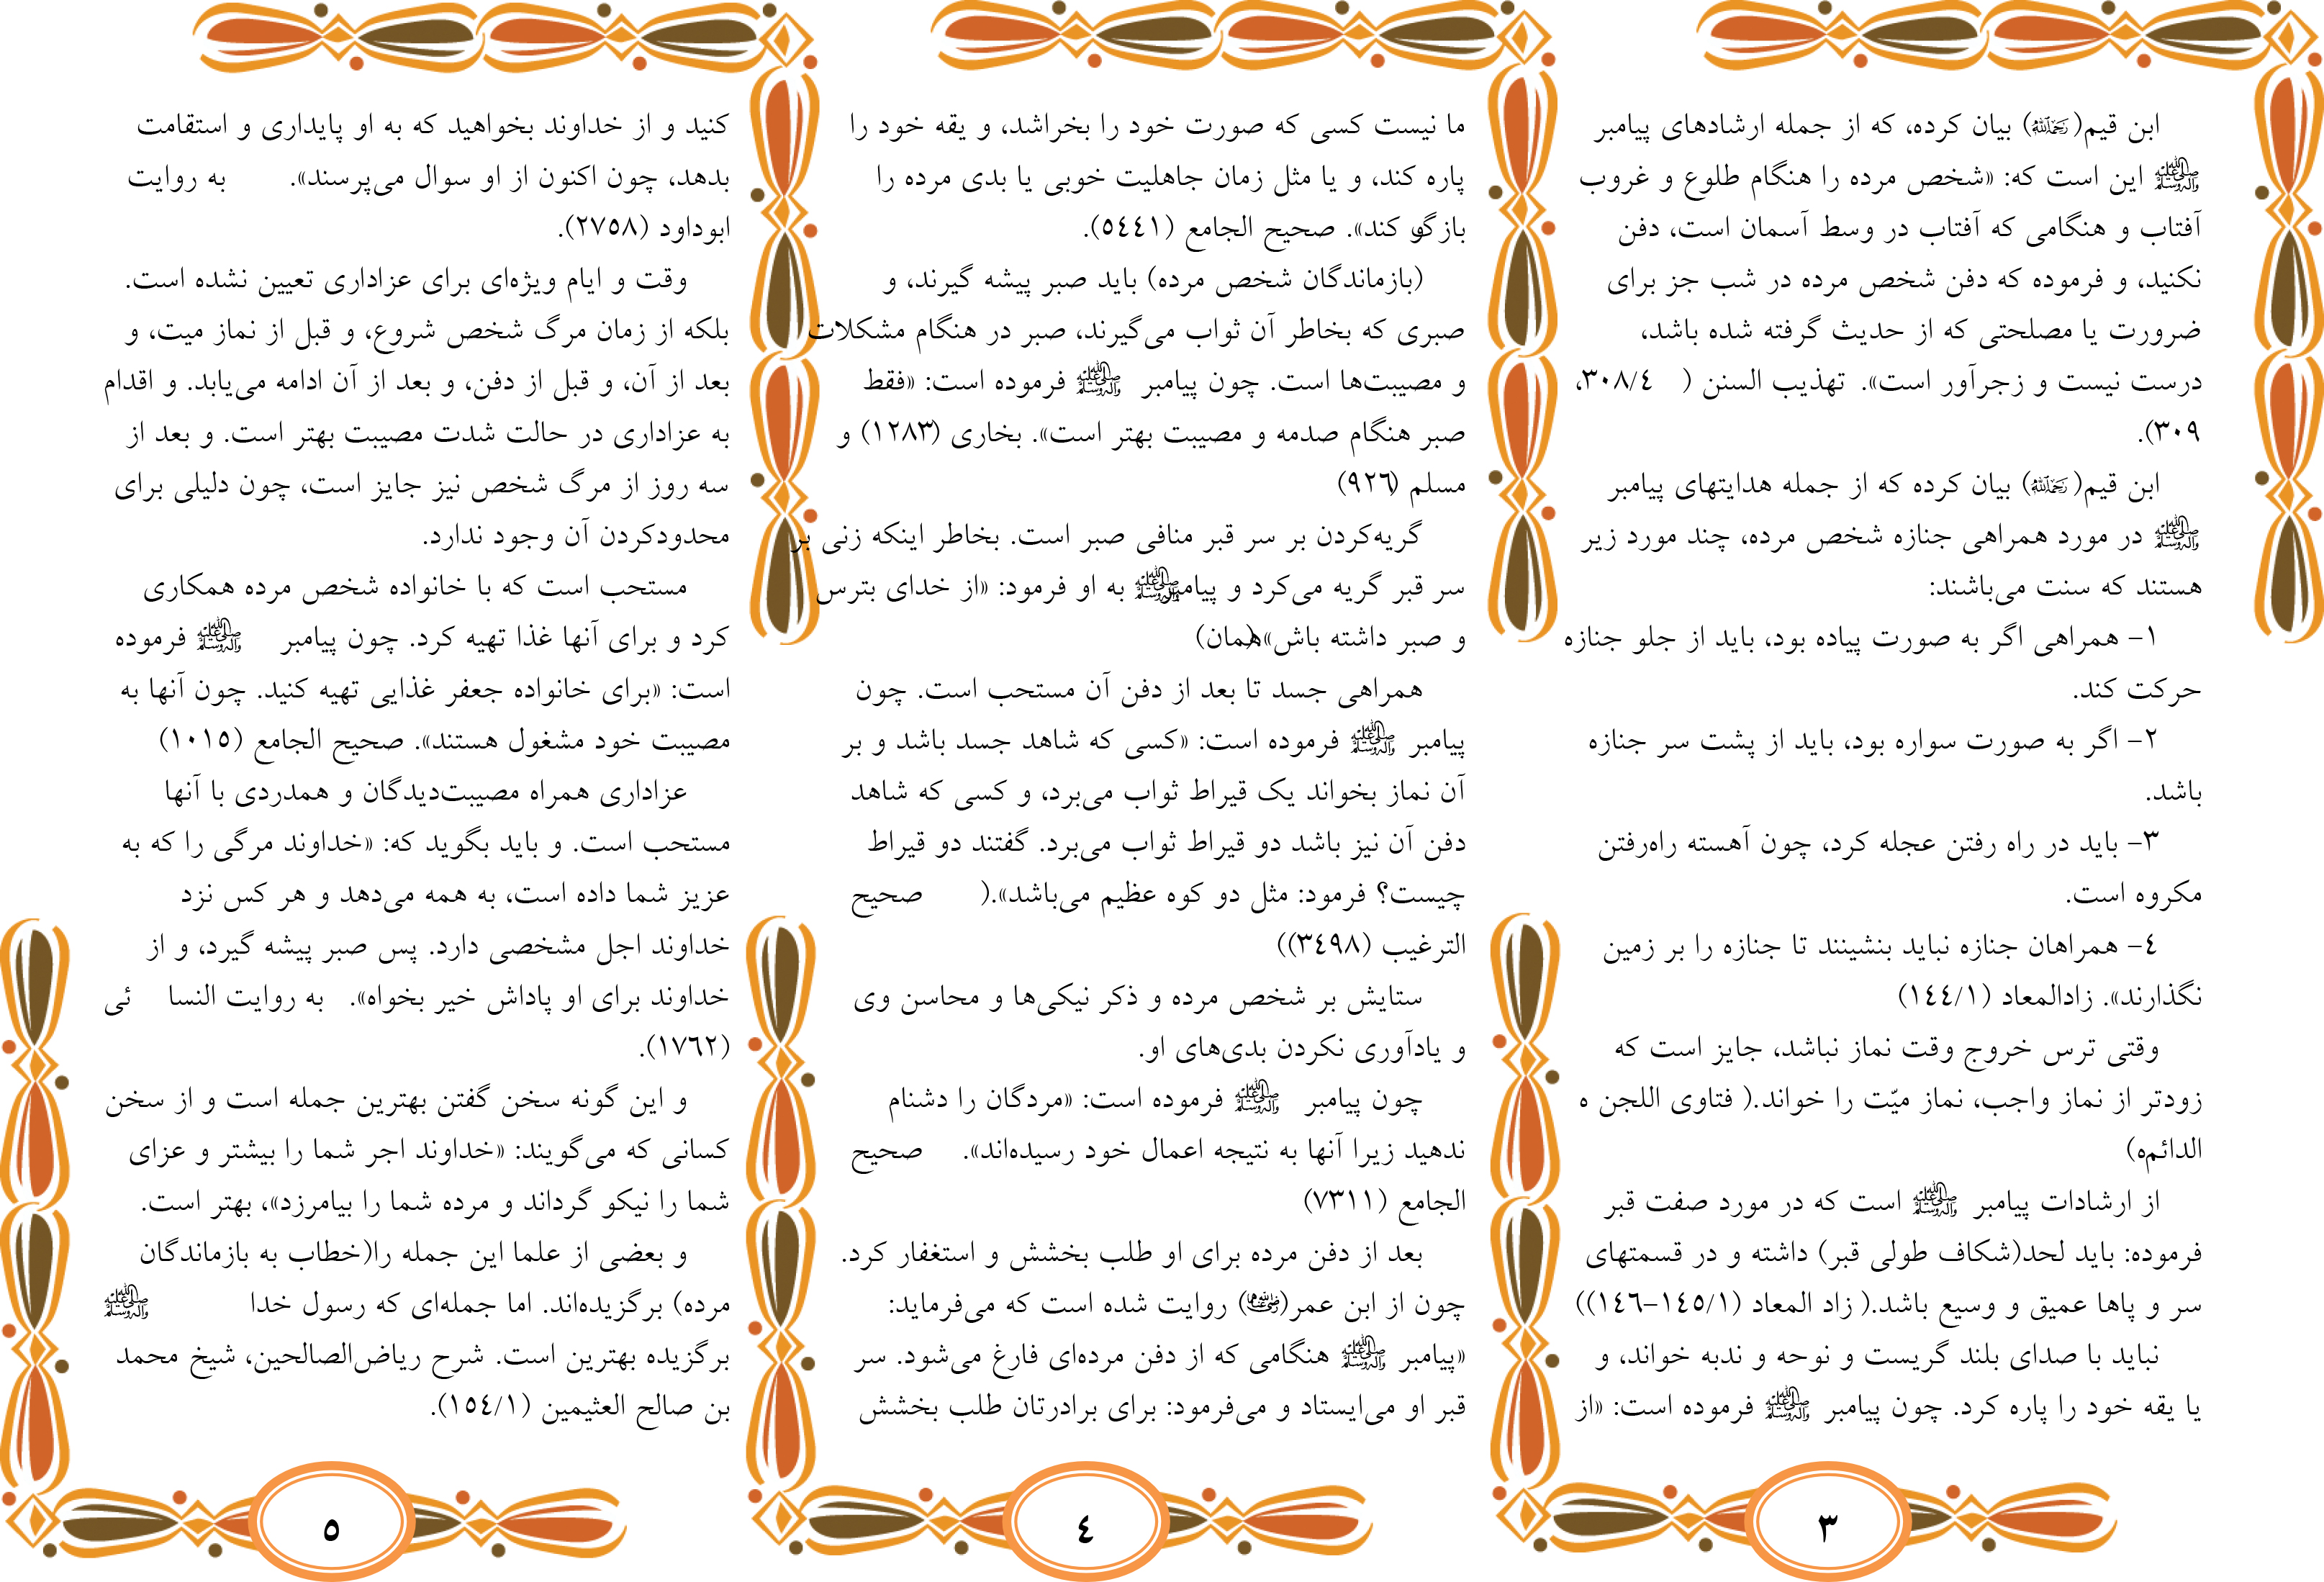 ابن قیم(رحمه الله) بیان کرده، که از جمله ارشادهای پیامبر
ﷺ این است که: «شخص مرده را هنگام طلوع و غروب
آفتاب و هنگامی که آفتاب در وسط آسمان است، دفن
نکنید، و فرموده که دفن شخص مرده در شب جز برای
ضرورت یا مصلحتی که از حدیث گرفته شده باشد،
درست نیست و زجرآور است». تهذیب السنن (٣٠٨/٤،
٣٠٩).
ابن قیم(رحمه الله) بیان کرده که از جمله هدایتهای پیامبر
ﷺ در مورد همراهی جنازه شخص مرده، چند مورد زیر
هستند که سنت می‌باشند:
١- همراهی اگر به صورت پیاده بود، باید از جلو جنازه
حرکت کند.
٢- اگر به صورت سواره بود، باید از پشت سر جنازه
باشد.
٣- باید در راه رفتن عجله کرد، چون آهسته راه‌رفتن
مکروه است.
٤- همراهان جنازه نباید بنشینند تا جنازه را بر زمین
نگذارند». زادالمعاد (١٤٤/١)
وقتی ترس خروج وقت نماز نباشد، جایز است که
زودتر از نماز واجب، نماز میّت را خواند.( فتاوی اللجن ه
الدائمه)
از ارشادات پیامبر ﷺ است که در مورد صفت قبر
فرموده: باید لحد(شکاف طولی قبر) داشته و در قسمتهای
سر و پاها عمیق و وسیع باشد.( زاد المعاد (١٤٥/١-١٤٦))
نباید با صدای بلند گریست و نوحه و ندبه خواند، و
یا یقه خود را پاره کرد. چون پیامبر ﷺ فرموده است: «از
٣
ما نیست کسی که صورت خود را بخراشد، و یقه خود را
پاره کند، و یا مثل زمان جاهلیت خوبی یا بدی مرده را
بازگو کند». صحیح الجامع (٥٤٤١).
(بازماندگان شخص مرده) باید صبر پیشه گیرند، و
صبری که بخاطر آن ثواب می‌گیرند، صبر در هنگام مشکلات
و مصیبت‌ها است. چون پیامبر ﷺ فرموده است: «فقط
صبر هنگام صدمه و مصیبت بهتر است». بخاری (١٢٨٣) و
مسلم (٩٢٦)
گریه‌کردن بر سر قبر منافی صبر است. بخاطر اینکه زنی بر
سر قبر گریه می‌کرد و پیامبر ﷺ به او فرمود: «از خدای بترس
و صبر داشته باش»(همان)
همراهی جسد تا بعد از دفن آن مستحب است. چون
پیامبر ﷺ فرموده است: «کسی که شاهد جسد باشد و بر
آن نماز بخواند یک قیراط ثواب می‌برد، و کسی که شاهد
دفن آن نیز باشد دو قیراط ثواب می‌برد. گفتند دو قیراط
چیست؟ فرمود: مثل دو کوه عظیم می‌باشد».( صحیح
الترغیب (٣٤٩٨))
ستایش بر شخص مرده و ذکر نیکی‌ها و محاسن وی
و یادآوری نکردن بدی‌های او.
چون پیامبر ﷺ فرموده است: «مردگان را دشنام
ندهید زیرا آنها به نتیجه اعمال خود رسیده‌اند». صحیح
الجامع (٧٣١١)
بعد از دفن مرده برای او طلب بخشش و استغفار کرد.
چون از ابن عمر(رضی الله عنهما) روایت شده است که می‌فرماید:
«پیامبر ﷺ هنگامی که از دفن مرده‌ای فارغ می‌شود. سر
قبر او می‌ایستاد و می‌فرمود: برای برادرتان طلب بخشش
٤
کنید و از خداوند بخواهید که به او پایداری و استقامت
بدهد، چون اکنون از او سوال می‌پرسند». به روایت
ابوداود (٢٧٥٨).
وقت و ایام ویژه‌ای برای عزاداری تعیین نشده است.
بلکه از زمان مرگ شخص شروع، و قبل از نماز میت، و
بعد از آن، و قبل از دفن، و بعد از آن ادامه می‌یابد. و اقدام
به عزاداری در حالت شدت مصیبت بهتر است. و بعد از
سه روز از مرگ شخص نیز جایز است، چون دلیلی برای
محدودکردن آن وجود ندارد.
مستحب است که با خانواده شخص مرده همکاری
کرد و برای آنها غذا تهیه کرد. چون پیامبر ﷺ فرموده
است: «برای خانواده جعفر غذایی تهیه کنید. چون آنها به
مصیبت خود مشغول هستند». صحیح الجامع (١٠١٥)
عزاداری همراه مصیبت‌دیدگان و همدردی با آنها
مستحب است. و باید بگوید که: «خداوند مرگی را که به
عزیز شما داده است، به همه می‌دهد و هر کس نزد
خداوند اجل مشخصی دارد. پس صبر پیشه گیرد، و از
خداوند برای او پاداش خیر بخواه». به روایت النسا ئی
(١٧٦٢).
و این گونه سخن گفتن بهترین جمله است و از سخن
کسانی که می‌گویند: «خداوند اجر شما را بیشتر و عزای
شما را نیکو گرداند و مرده شما را بیامرزد»، بهتر است.
و بعضی از علما این جمله را(خطاب به بازماندگان
مرده) برگزیده‌اند. اما جمله‌ای که رسول خدا ﷺ
برگزیده بهترین است. شرح ریاض‌الصالحین، شیخ محمد
بن صالح العثیمین (١٥٤/١).
٥